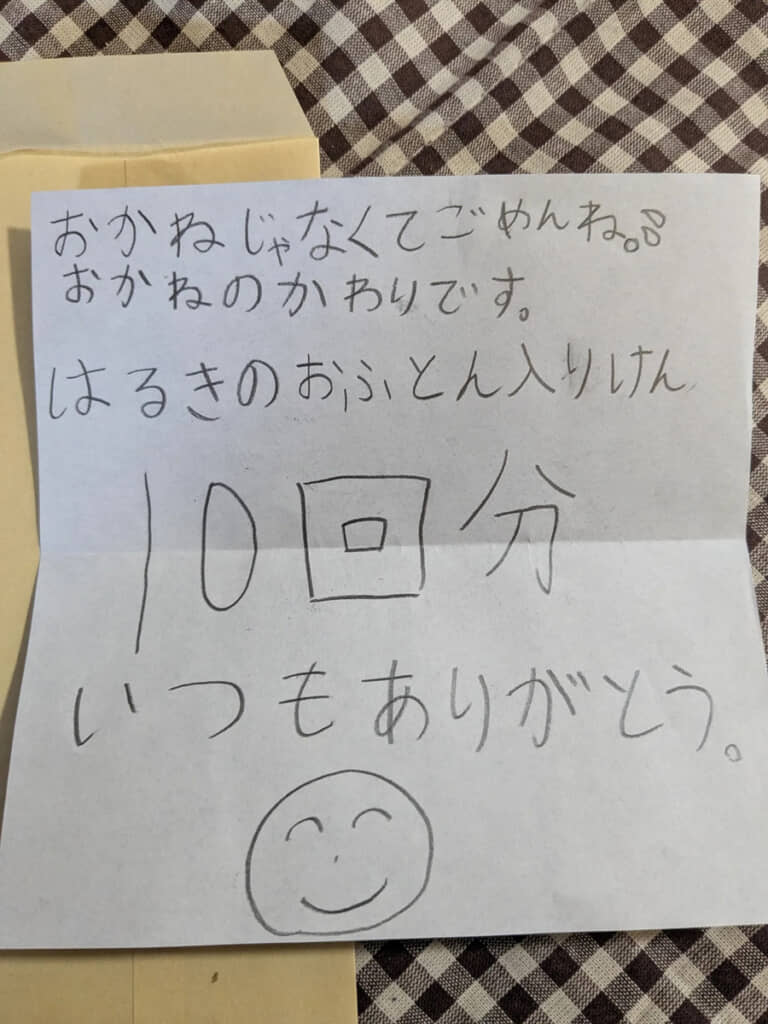 おかねじゃなくてごめんね。
おかねのかわりです。
はるきのおふとん入りけん
10回分
いつもありがとう。